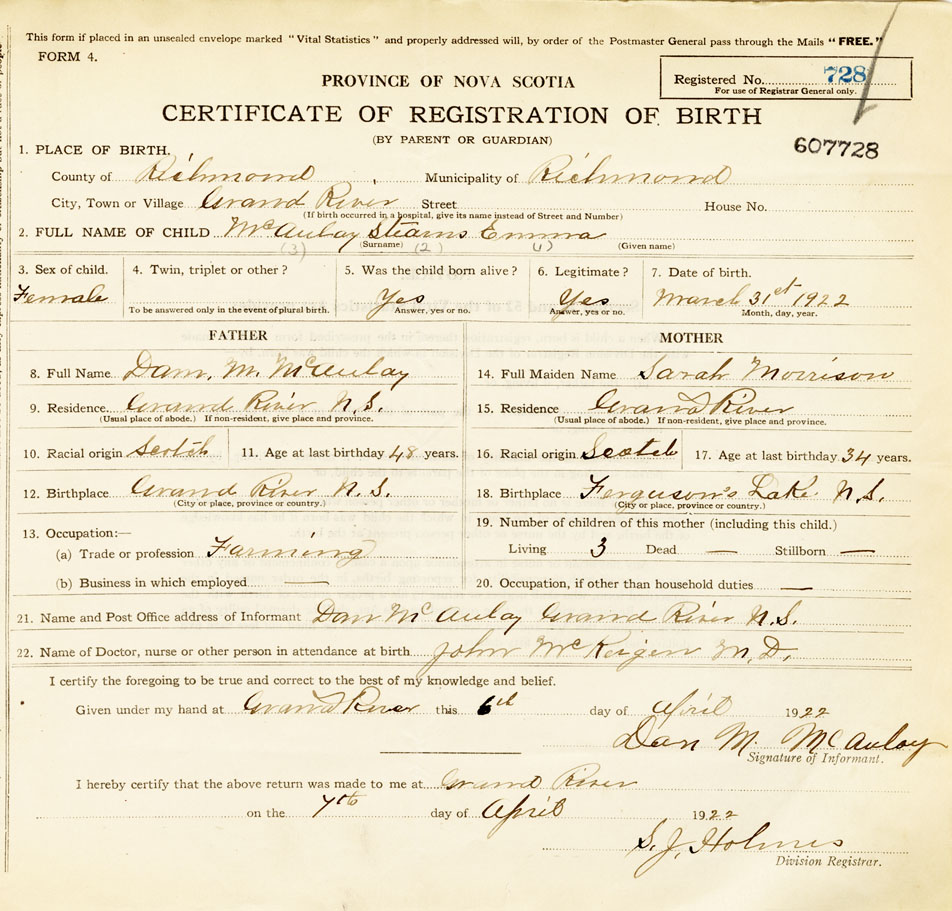 This form if placed in an unsealed envelope marked "Vital Statistics" and properly addressed will, by order of the Postmaster General pass through the Mails "FREE."
FORM 4.
Registered No. 728
For use of Registrar General only.
PROVINCE OF NOVA SCOTIA
CERTIFICATE OF REGISTRATION OF BIRTH
(BY PARENT OR GUARDIAN)
607728
1. PLACE OF BIRTH.
County of Richmond, Municipality of Richmond
City, Town or Village Grand River Street House No.
(If birth occurred in a hospital, give its name instead of Street and Number)
2. FULL NAME OF CHILD McAulay Stearns Emma
(3) (Surname) (2) (1) (Given name)
3. Sex of child. 4. Twin, triplet or other? 5. Was the child born alive? 6. Legitimate? 7. Date of birth.
Female Yes Yes March 31st 1922
To be answered only in the event of plural birth. Answer, yes or no. Answer, yes or no. Month, day, year.
FATHER MOTHER
8. Full Name Dan. M. McAulay 14. Full Maiden Name Sarah Morrison
9. Residence Grand River N.S. 15. Residence Grand River
(Usual place of abode.) If non-resident, give place and province. (Usual place of abode.) If non-resident, give place and province.
10. Racial origin Scotch 11. Age at last birthday 48 years. 16. Racial origin Scotch 17. Age at last birthday 34 years.
12. Birthplace Grand River N.S. 18. Birthplace Ferguson's Lake N.S.
(City or place, province or country.) (City or place, province or country.)
13. Occupation:— 19. Number of children of this mother (including this child.)
(a) Trade or profession Farming Living 3 Dead — Stillborn —
(b) Business in which employed — 20. Occupation, if other than household duties —
21. Name and Post Office address of Informant Dan McAulay Grand River N.S.
22. Name of Doctor, nurse or other person in attendance at birth John McKeigen M.D.
I certify the foregoing to be true and correct to the best of my knowledge and belief.
Given under my hand at Grand River this 6th day of April 1922
Dan M. McAulay
Signature of Informant.
I hereby certify that the above return was made to me at Grand River
on the 7th day of April 1922
S. J. Holmes
Division Registrar.